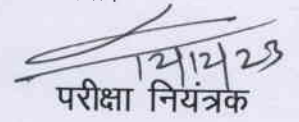 12/12/23
परीक्षा नियंत्रक